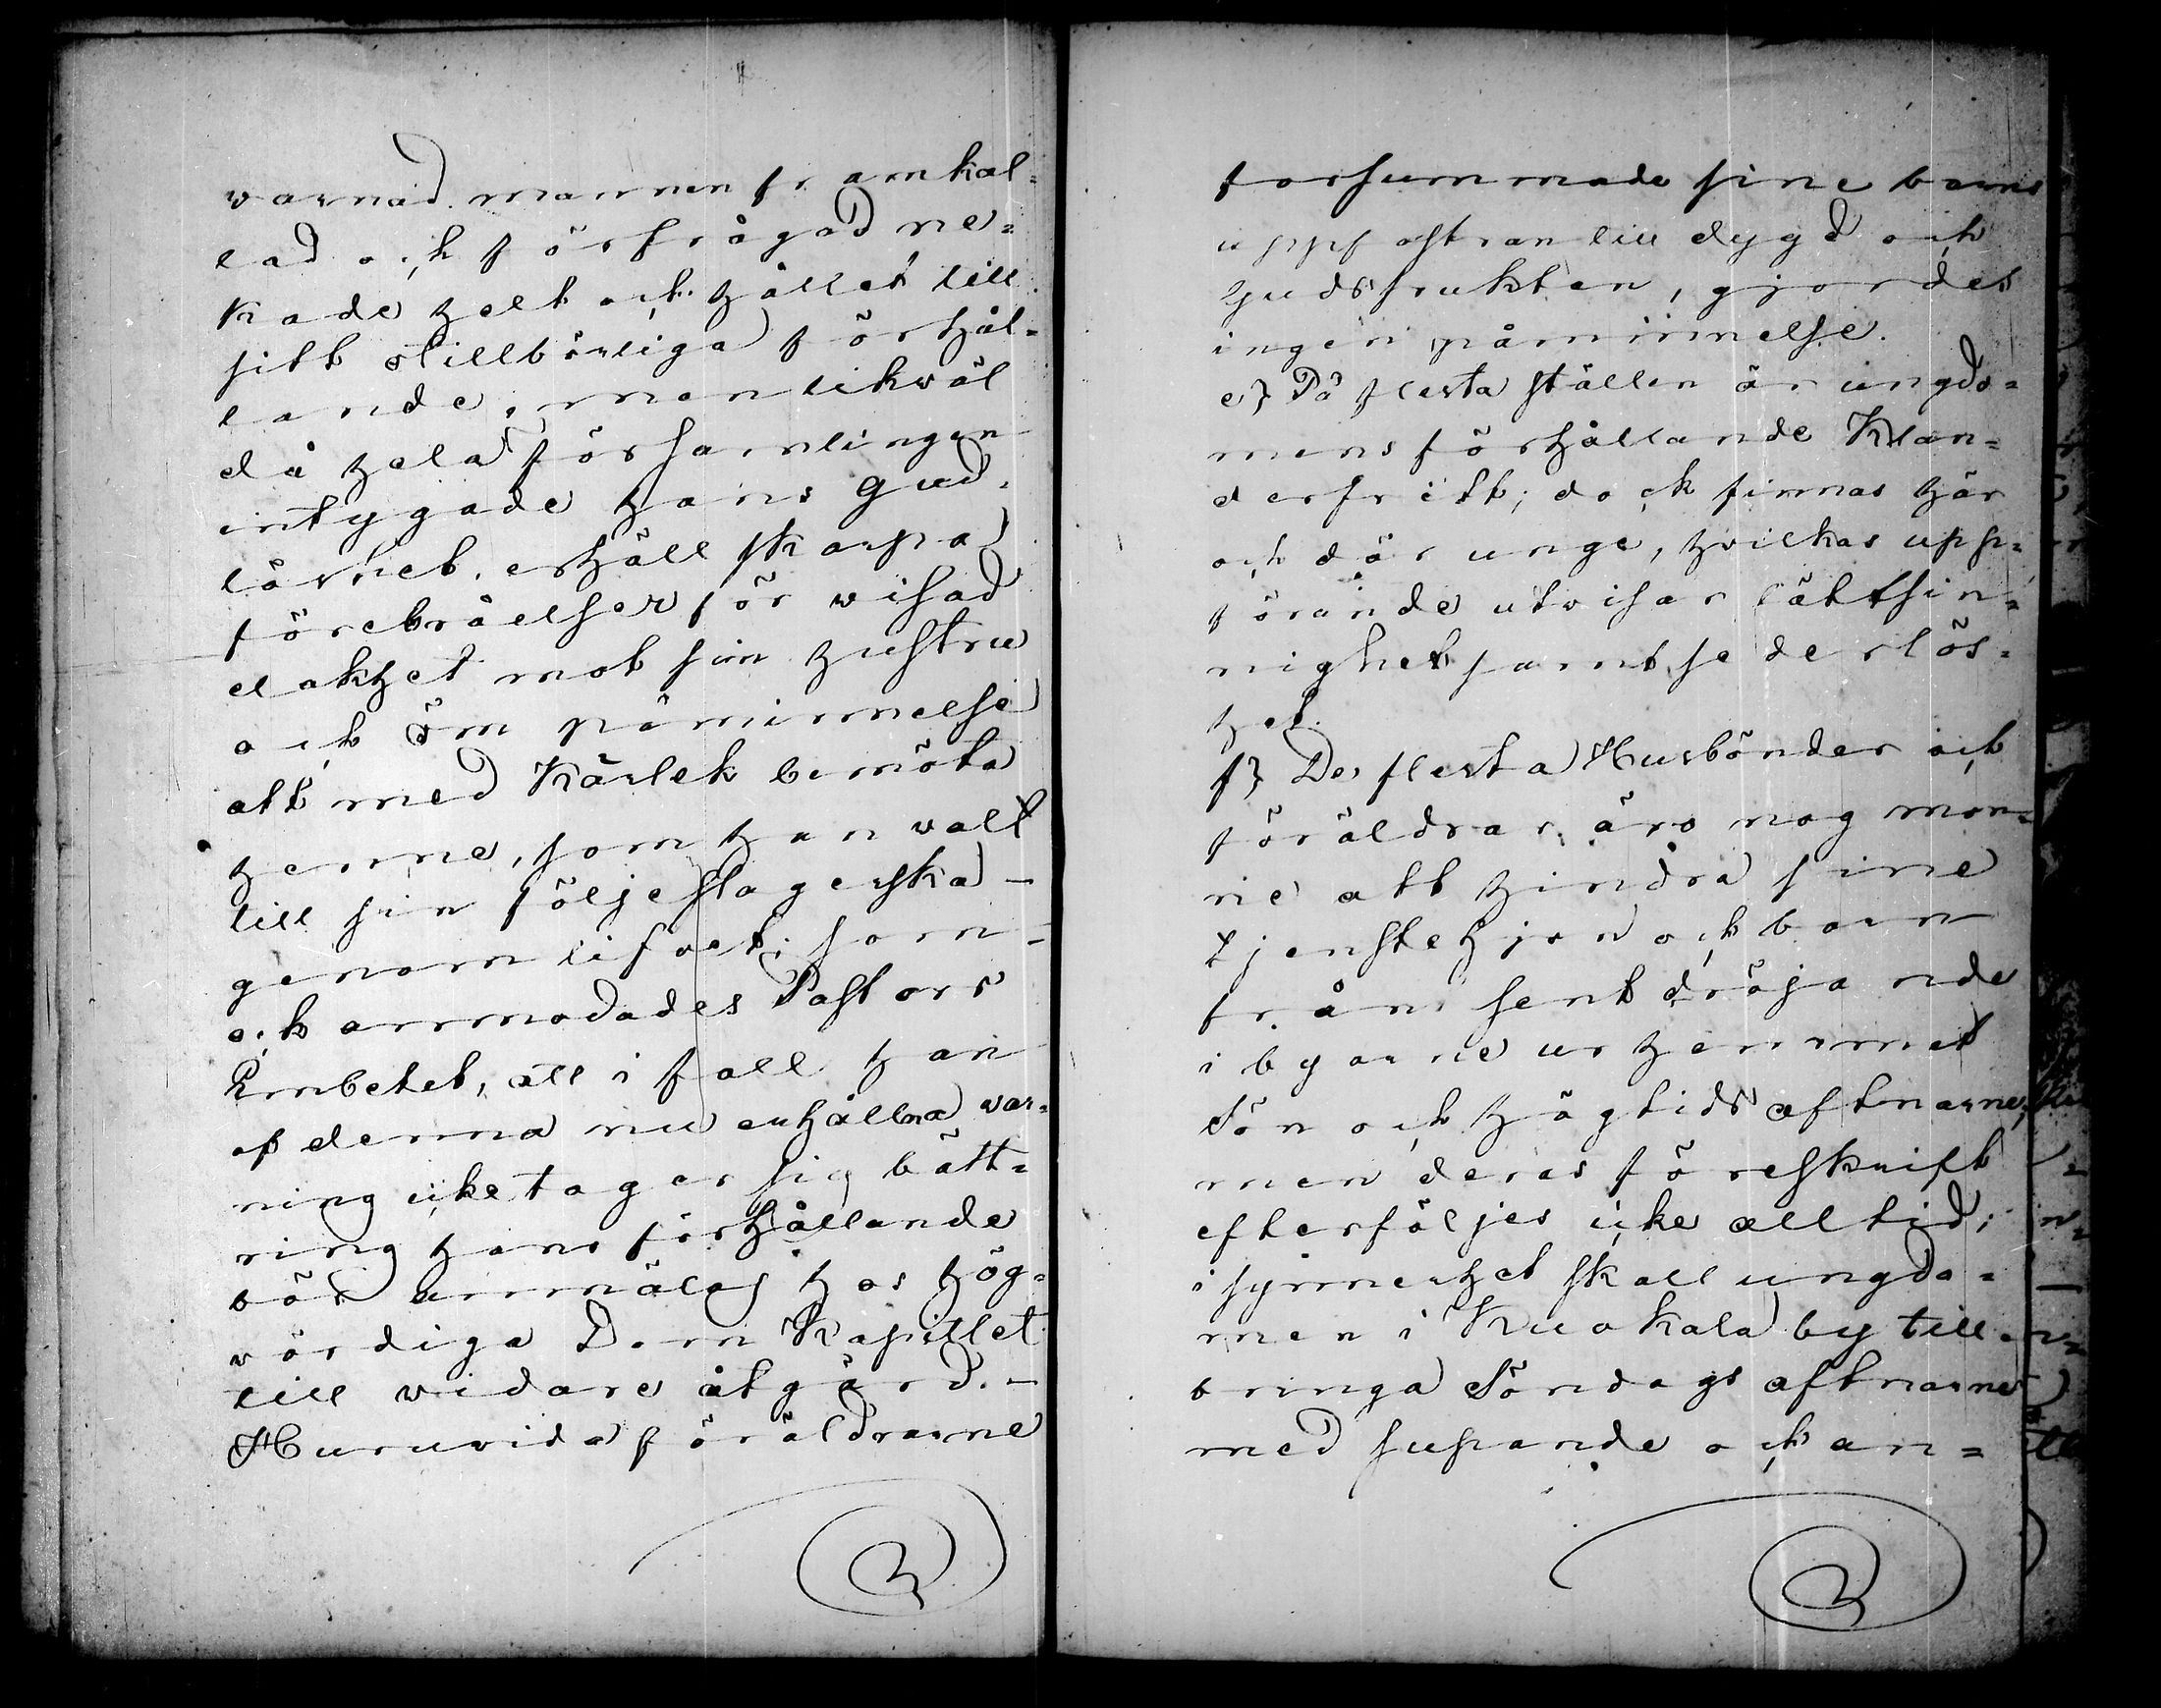 warnad. mannen framkal=
lad och förfrågad ne=
kade helt och hållet till
sitt otillbörliga förhål=
lande; men likwäl
då hela församlingen
intygade hans gud=
löshet, erhöll skarpa
förebråelser för wisad
elakhet mot sin hustru
och öm påminnelse
att med Kärlek bemöta
henne, som han walt
till sin följeslagerska —
genom lifvet; som —
ock anmodades Pastors
Embetet, att i fall han
af denna nu erhållna war=
ning icke tager sig bätt=
ring hans förhållande
bör anmälas hos hög=
wördiga Dom Kapitlet
till widare åtgärd. —
Huruvida föräldrarne
försummade sine barns
uppfostran till dygd och
Gudsfruktan, gjordes
ingen påminnelse.
e} På flesta ställen är ungdo=
mens förhållande Klan=
derfritt; dock finnas här
och där unge, hvilkas upp=
förande utvisar lättsin=
nighet samt sederlös=
het.
f} De flesta Husbönder och
föräldrar äro nog mon=
ne att hindra sine
tjenstehjon och barn
från sent dröjande
i byarne ur hemmet
Sön och högtids aftnarne,
men deras föreskrift
efterföljes icke alltid;
isynnerhet skall ungdo=
men i Kuokala by till=
bringa Söndags aftnarne
med supande och an=